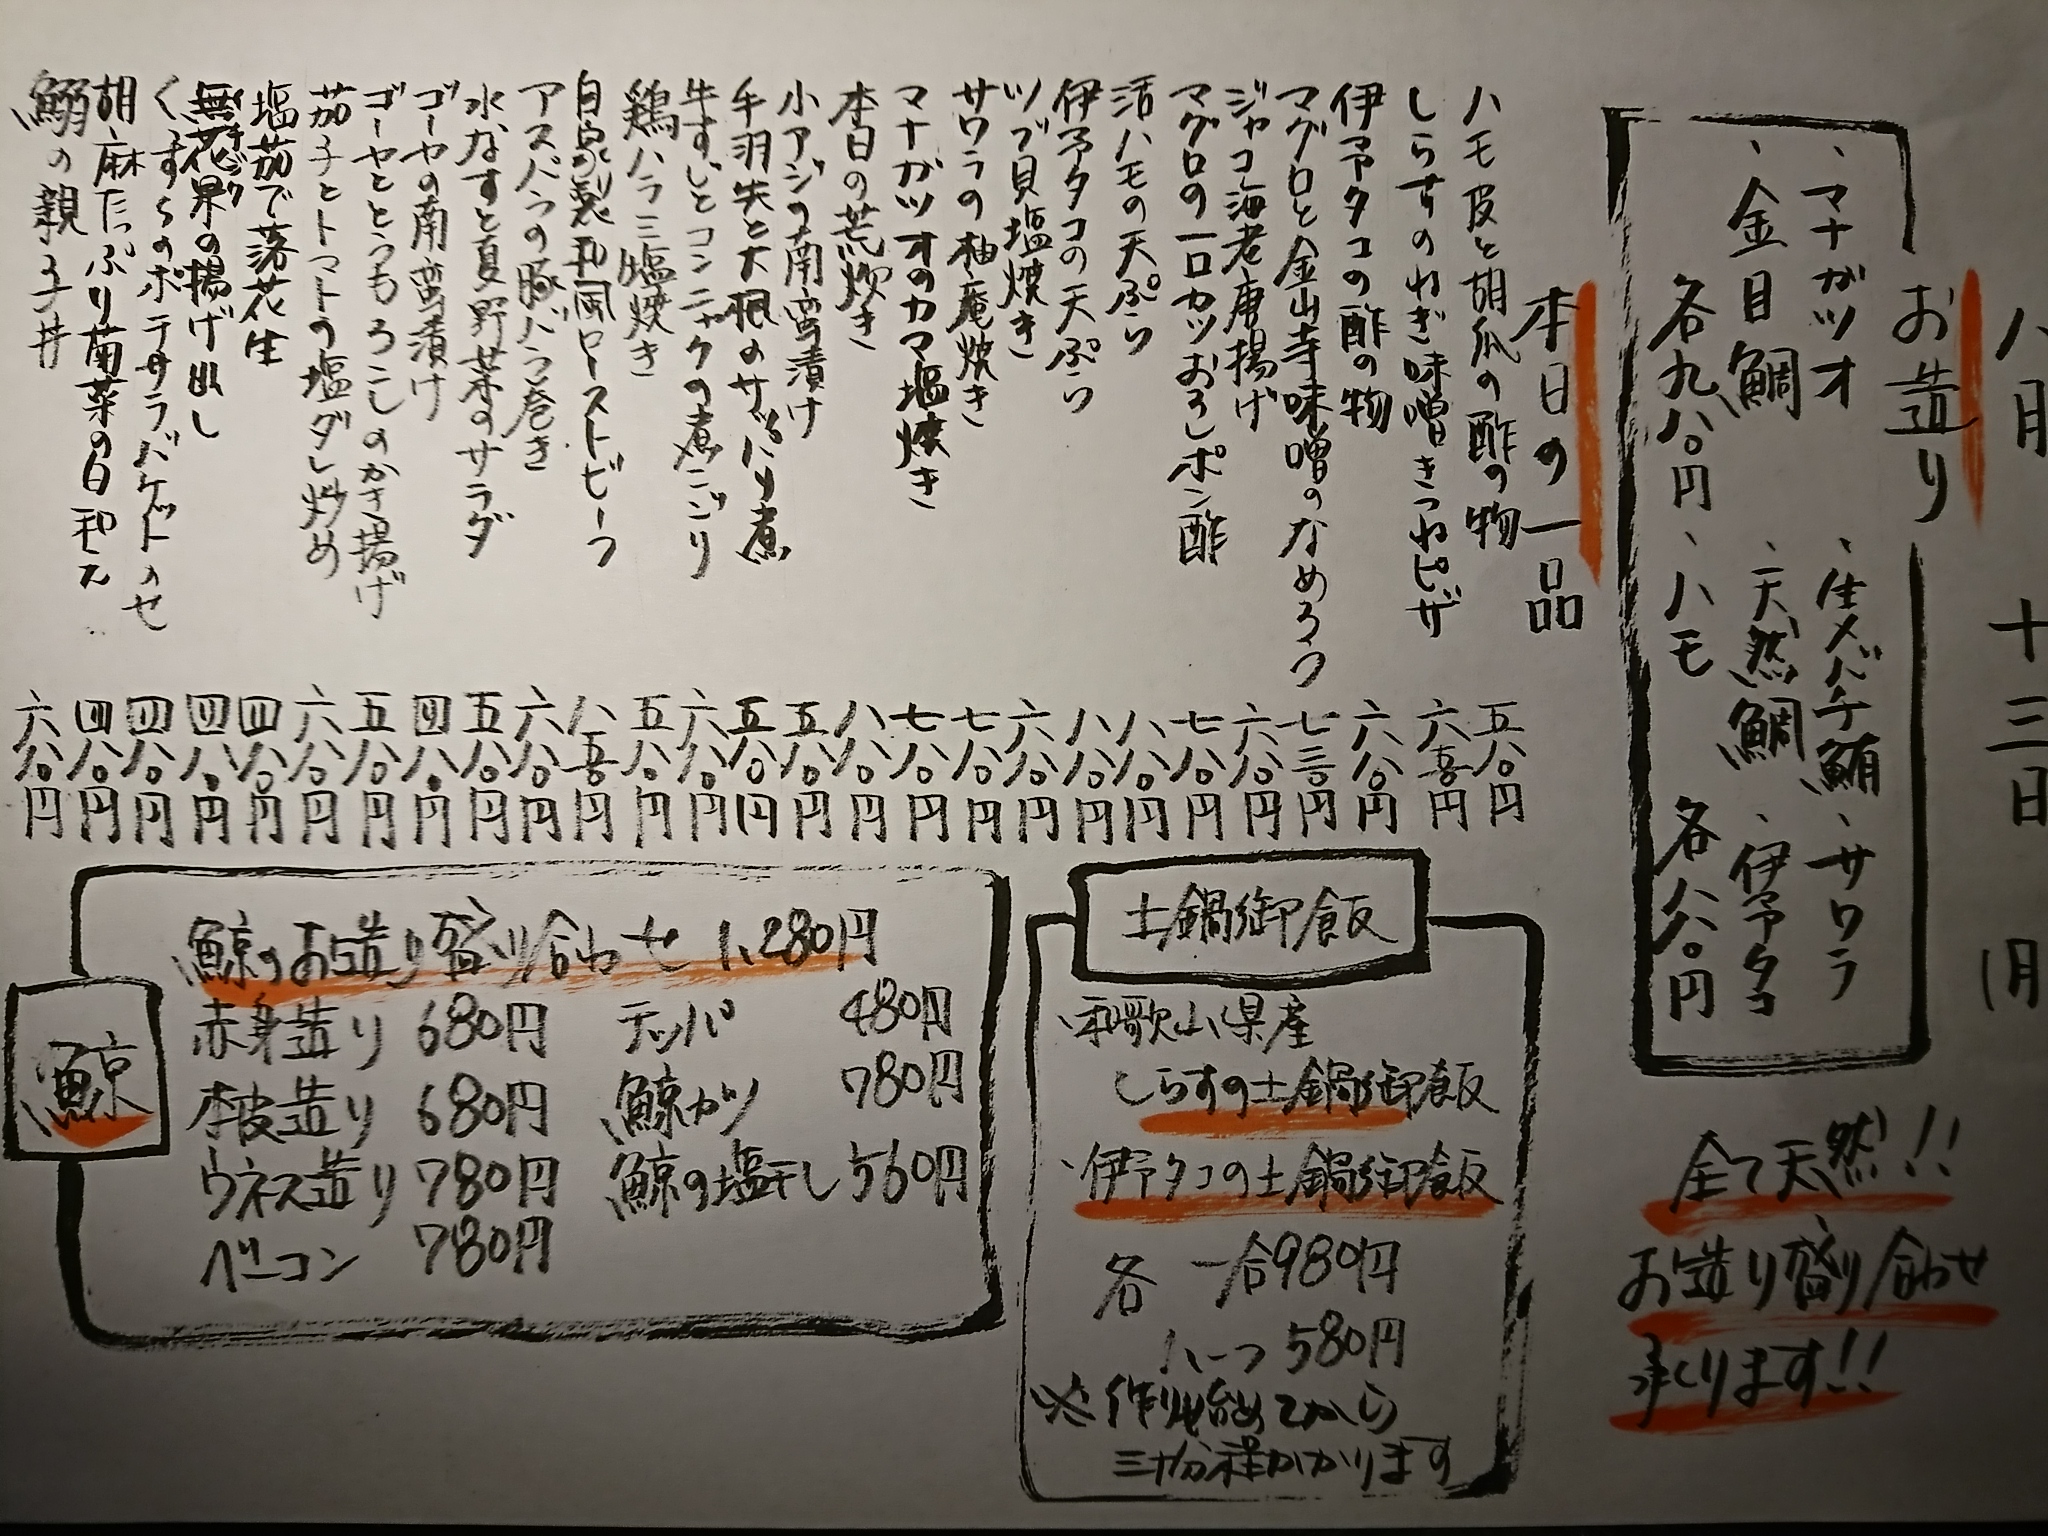 八月 十三日 月
お造り
、マナガツオ 、生メバチ鮪 、サワラ
、金目鯛 、天然鯛 、伊予タコ
各九八〇円 、ハモ 各八八〇円
全て天然!!
お造り盛り合わせ
承ります!!
本日の一品
ハモ皮と胡瓜の酢の物 五八〇円
しらすのねぎ味噌きつねピザ 六五〇円
伊予タコの酢の物 六八〇円
マグロと金山寺味噌のなめろう 七三〇円
ジャコ海老唐揚げ 六八〇円
マグロの一口カツおろしポン酢 七八〇円
活ハモの天ぷら 八八〇円
伊予タコの天ぷら 八八〇円
ツブ貝塩焼き 六八〇円
サワラの柚庵焼き 七八〇円
マナガツオのカマ塩焼き 七八〇円
本日の荒炊き 八八〇円
小アジの南蛮漬け 五八〇円
手羽先と大根のサッパリ煮 五八〇円
牛すじとコンニャクの煮こごり 六八〇円
鶏ハラミ塩焼き 五八〇円
自家製和風ローストビーフ 八五〇円
アスパラの豚バラ巻き 六八〇円
水なすと夏野菜のサラダ 五八〇円
ゴーヤの南蛮漬け 四八〇円
ゴーヤととうもろこしのかき揚げ 五八〇円
茄子とトマトの塩ダレ炒め 六八〇円
塩茹で落花生 四八〇円
無花果の揚げ出し 四八〇円
イチジク
くずしのポテサラバケットのせ 四八〇円
胡麻たっぷり菊菜の白和え 四八〇円
鰯の親子丼 六八〇円
土鍋御飯
・和歌山県産
しらすの土鍋御飯
・伊予タコの土鍋御飯
各 一合980円
ハーフ580円
※作り始めてから
三十分程かかります
鯨
鯨のお造り盛り合わせ 1,280円
赤身造り 680円 テッパ 480円
本皮造り 680円 鯨カツ 780円
ウネス造り 780円 鯨の塩干し 560円
ベーコン 780円